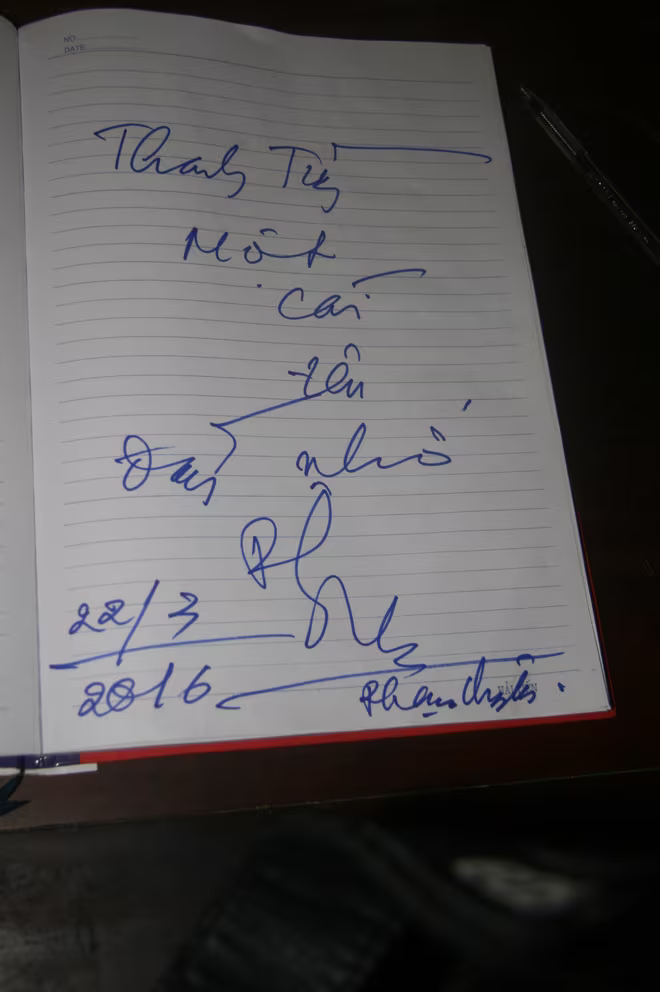 NO
DATE
Thanh Tùng
Một
cái
tên
Đáng nhớ
22/3
2016
Phạm